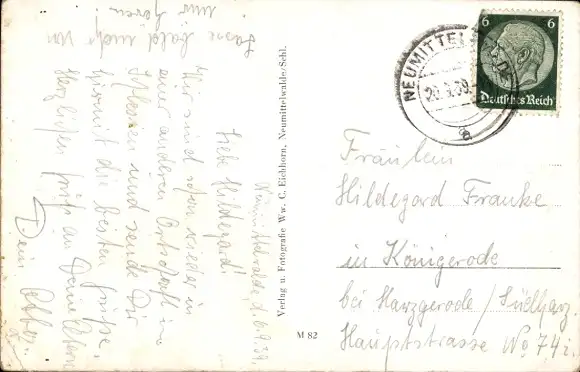 Neumittelwalde, d. 6.9.39.
Liebe Hildegard!
Wir sind schon wieder in
einer anderen Ortschaft in
Schlesien und sende Dir
hiermit die besten Grüße.
Herzlichen Gruß an Deine Eltern
Dein
Lasse bald mehr von
mir hören!
Verlag u. Fotografie Ww. C. Eichhorn, Neumittelwalde/Schl.
M 82
NEUMITTEL
6 6
Deutsches Reich
a
Fräulein
Hildegard Franke
in Königerode
bei Harzgerode / Südharz.
Hauptstrasse No 74